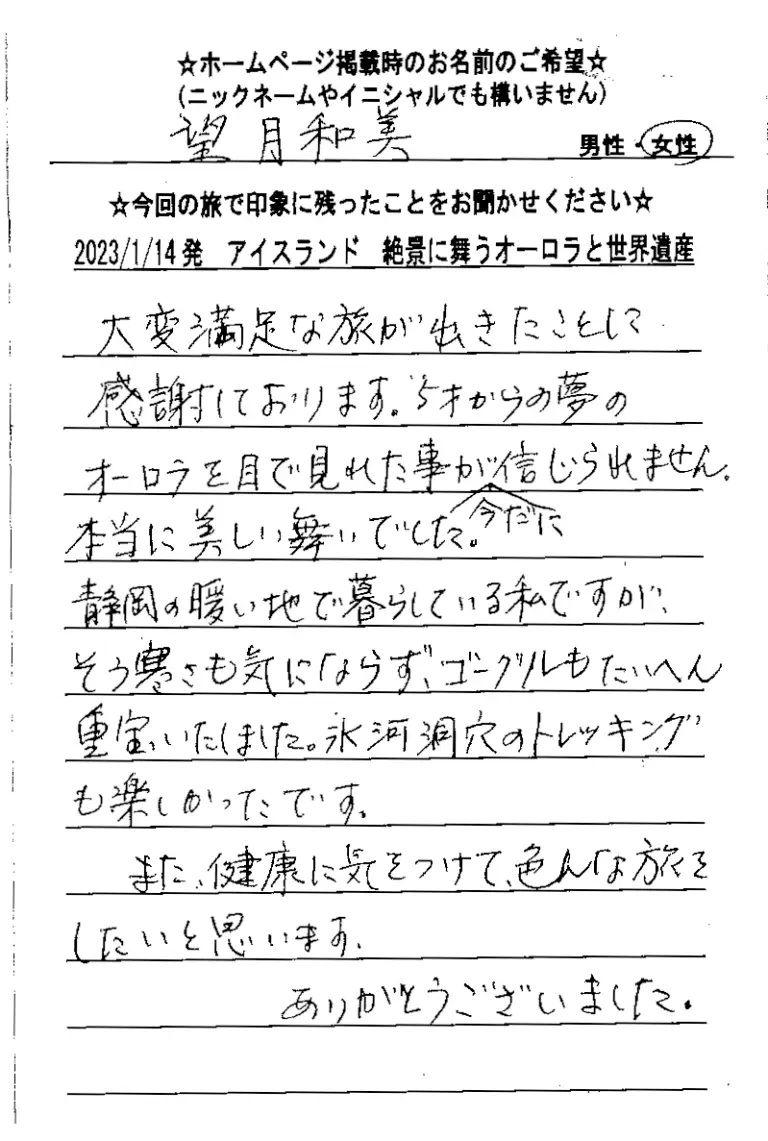 ☆ホームページ掲載時のお名前のご希望☆
(ニックネームやイニシャルでも構いません)
望月和美 男性・女性
☆今回の旅で印象に残ったことをお聞かせください☆
2023/1/14発 アイスランド 絶景に舞うオーロラと世界遺産
大変満足な旅が出きたことして
感謝しております。5才からの夢の
オーロラを目で見れた事が信じられません。
本当に美しい舞いでした。今だに
青静岡の暖い地で暮らしている私ですが、
そう寒さも気にならず、ゴーグルもたいへん
重宝いたしました。氷河洞穴のトレッキング
も楽しかったです。
また、健康に気をつけて、色んな旅を
したいと思います。
ありがとうございました。